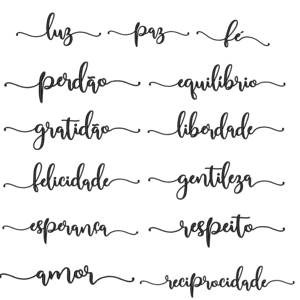 luz paz fé
perdão equilibrio
gratidão liberdade
felicidade gentileza
esperança respeito
amor reciprocidade